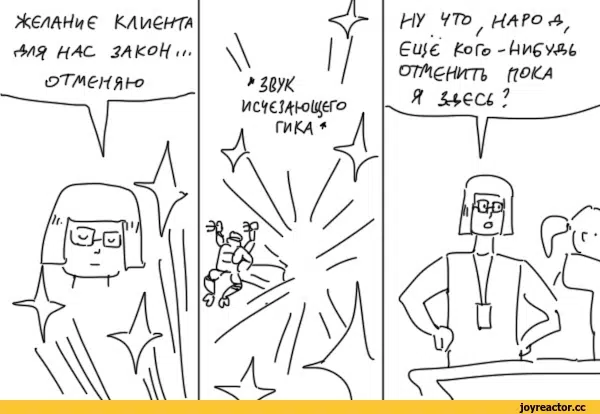 ЖЕЛАНИЕ КЛИЕНТА
ДЛЯ НАС ЗАКОН...
ОТМЕНЯЮ
* ЗВУК
ИСЧЕЗАЮЩЕГО
ГИКА *
НУ ЧТО, НАРОД,
ЕЩЁ КОГО-НИБУДЬ
ОТМЕНИТЬ ПОКА
Я ЗДЕСЬ?
joyreactor.cc